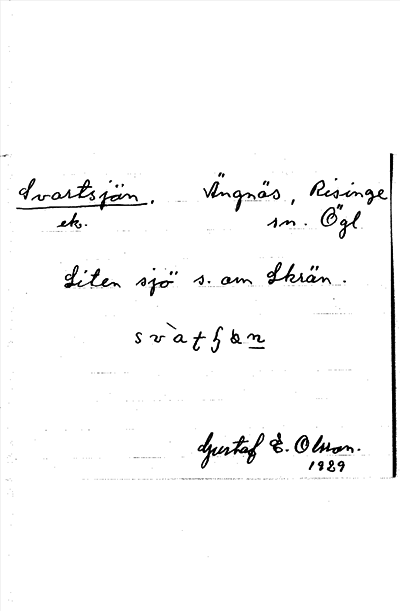 Svartsjön. Ängnäs, Risinge
ek. sn. Ögl
Liten sjö s. om Skrän.
Gustaf E. Olsson.
1929